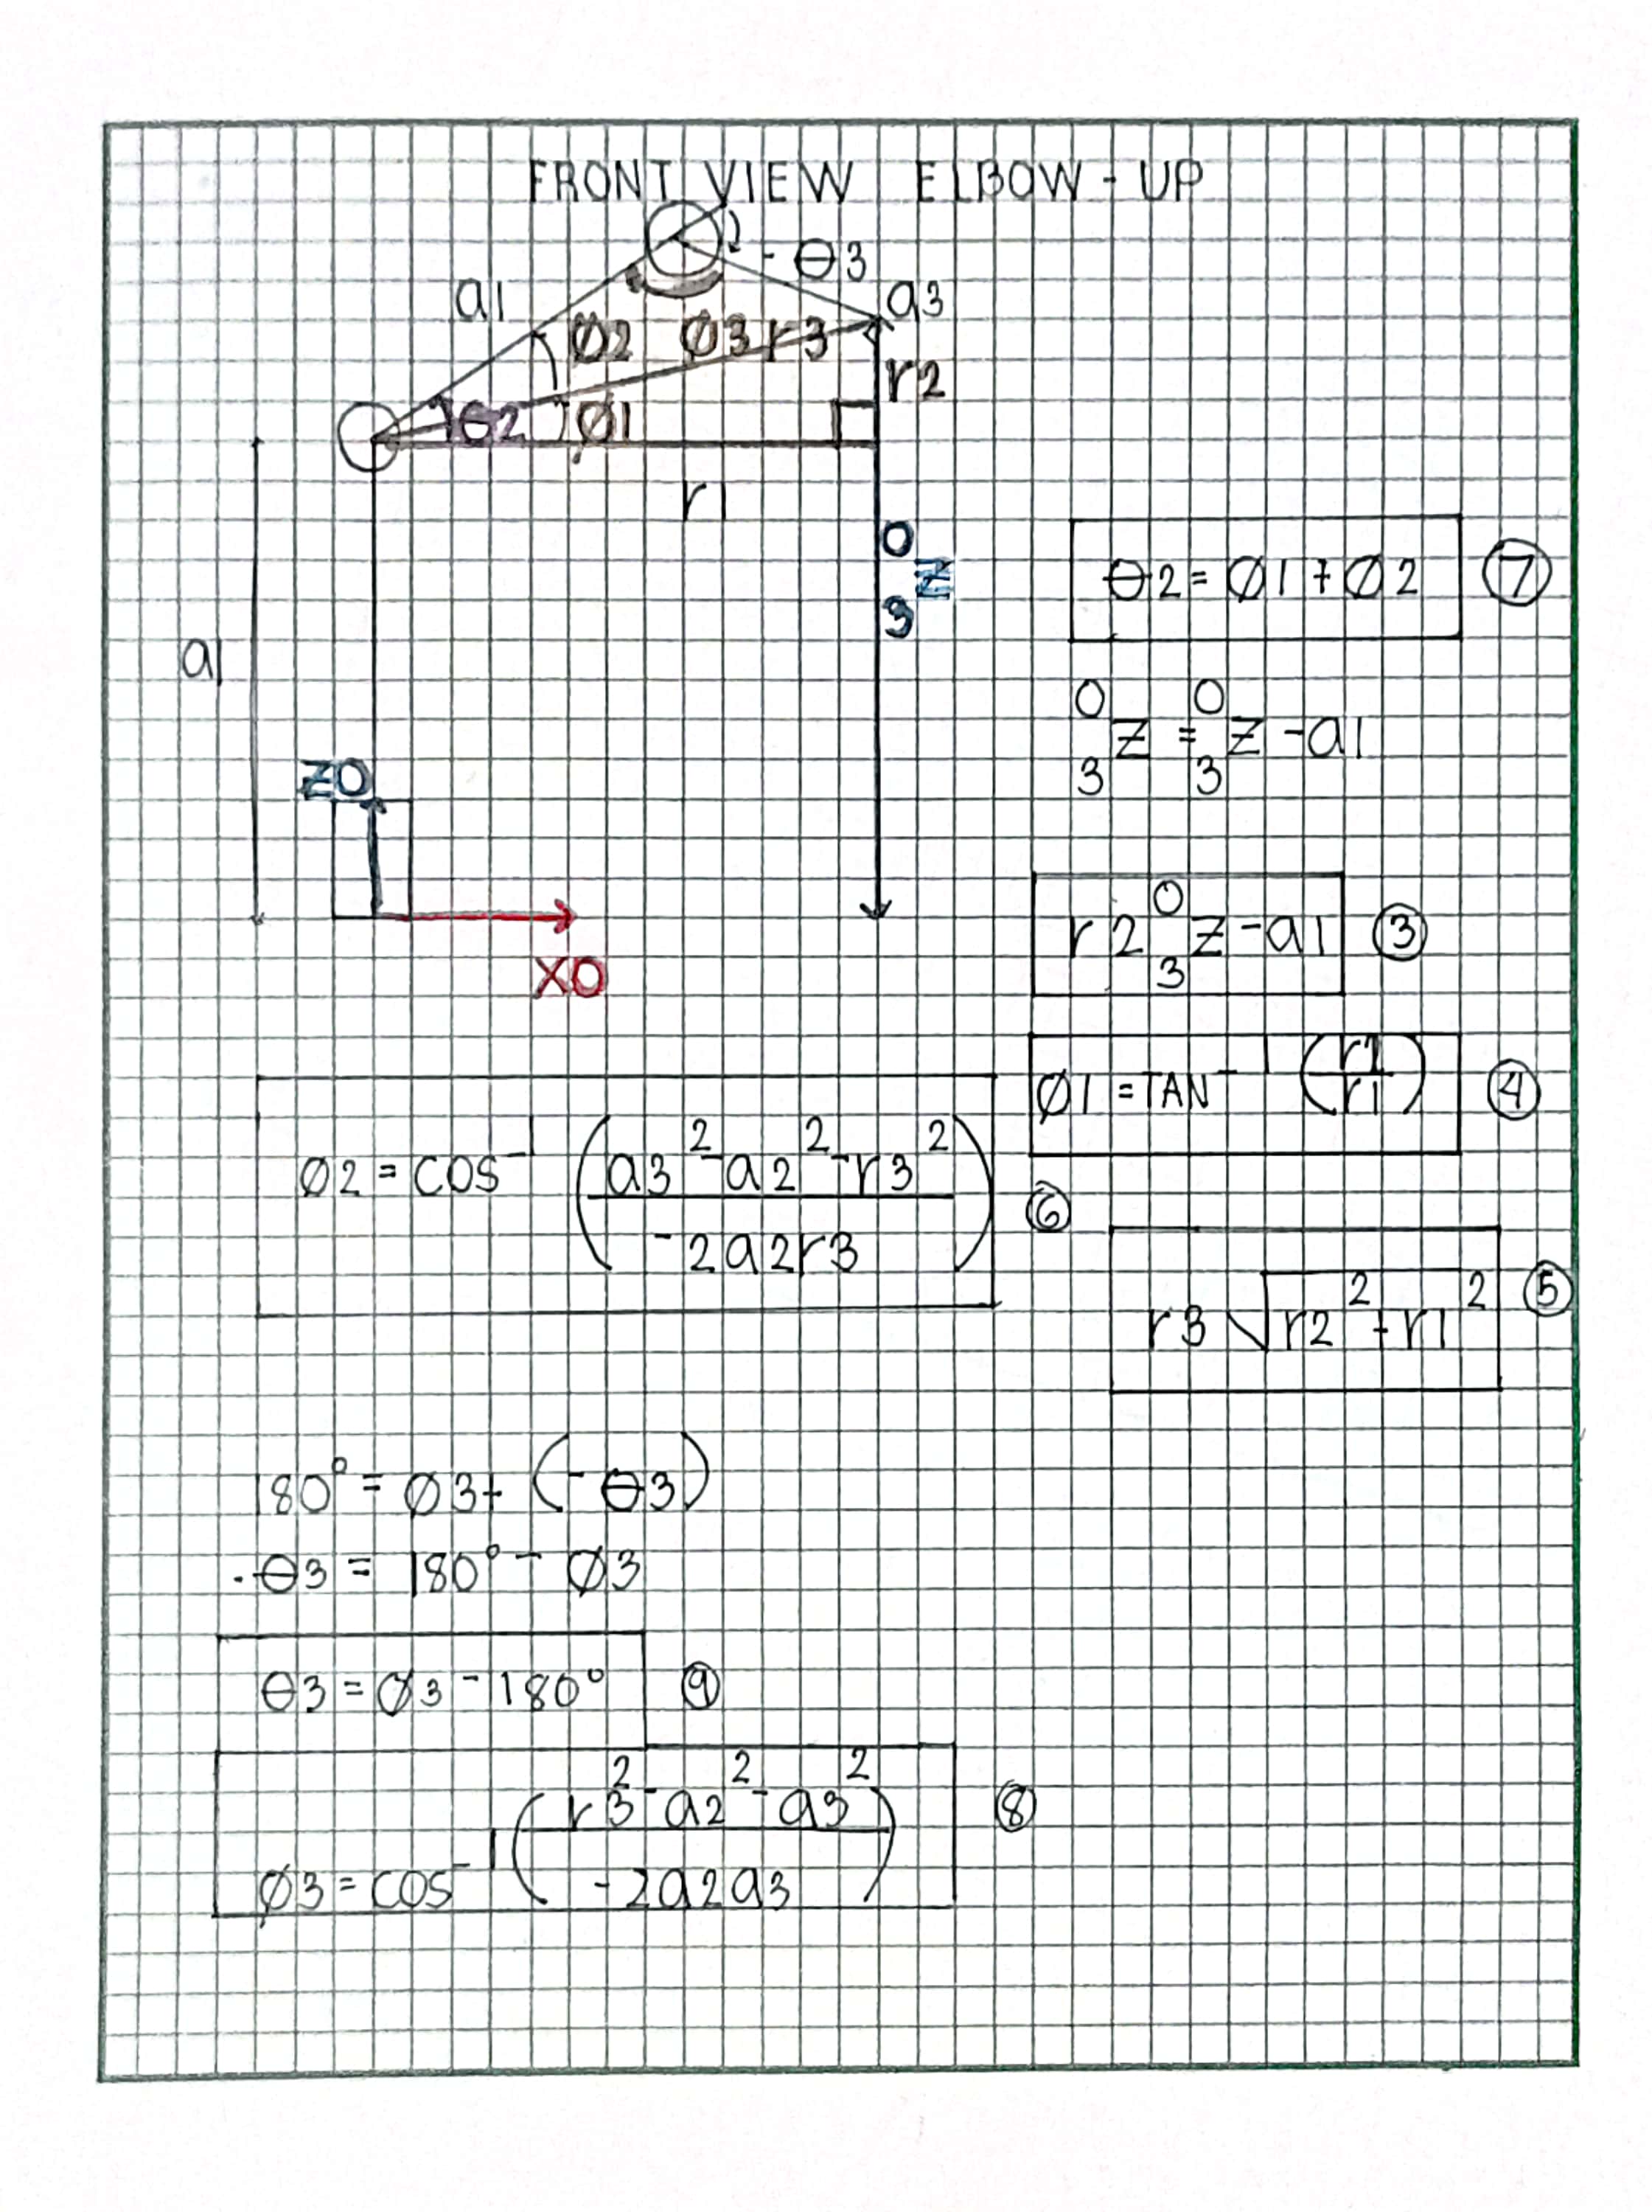 FRONT VIEW ELBOW-UP
-θ3
a1
a3
Ø2 Ø3 r3
r2
θ2 Ø1
r1
0
Z
3
θ2 = Ø1 + Ø2 ⑦
a1
0 0
Z = Z - a1
3 3
Z0
0
r2 Z - a1 ③
3
X0
Ø1 = TAN⁻¹ (r2/r1) ④
Ø2 = COS⁻¹ ((a3² - a2² - r3²)/(-2a2r3)) ⑥
r3 √(r2² + r1²) ⑤
180° = Ø3 + (-θ3)
-θ3 = 180° - Ø3
θ3 = Ø3 - 180° ⑨
Ø3 = COS⁻¹ ((r3² - a2² - a3²)/(-2a2a3)) ⑧